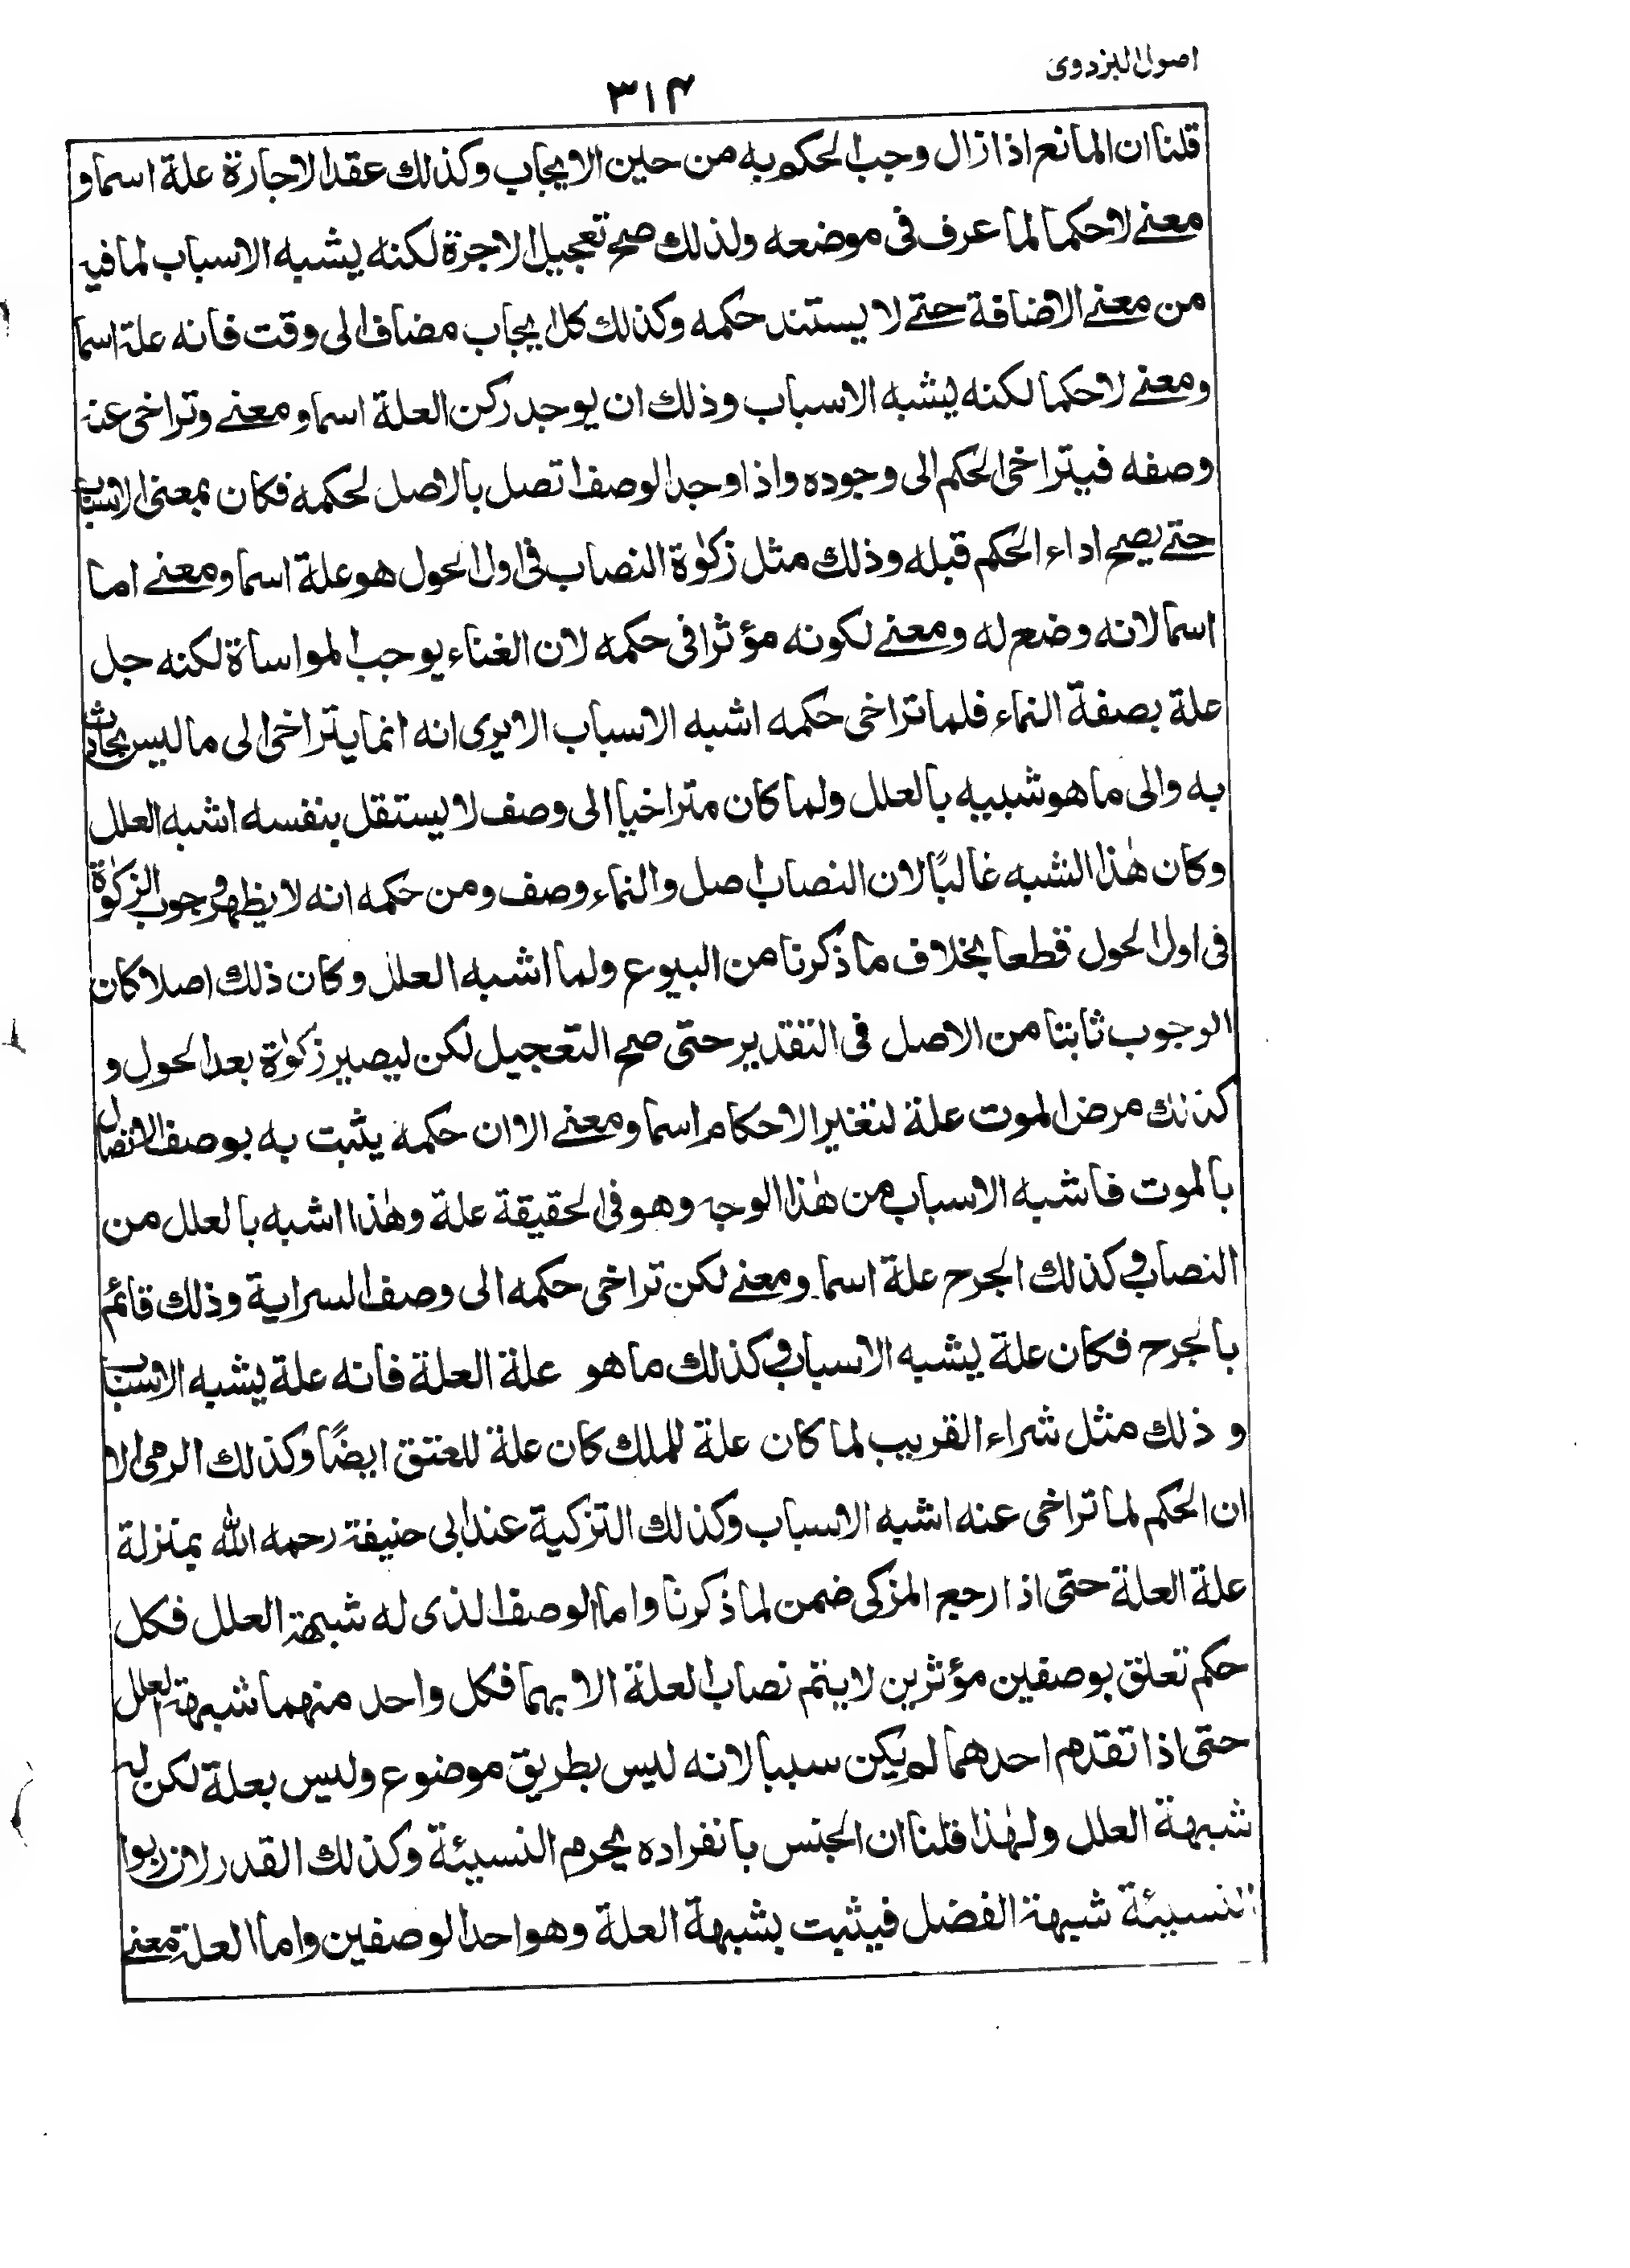 اصول البزدوی
۳۱۴
قلنا ان المانع اذا زال وجب الحكم به من حين الايجاب وكذلك عقد الاجارة علة اسما و
معنے لا حكما لما عرف فى موضعه ولذلك صح تعجيل الاجرة لكنه يشبه الاسباب لما فيه
من معنے الاضافة حتے لا يستند حكمه وكذلك كل ايجاب مضاف الى وقت فانه علة اسما
ومعنے لا حكما لكنه يشبه الاسباب وذلك ان يوجد ركن العلة اسما ومعنے وتراخى عنه
وصفه فيتراخى الحكم الى وجوده واذا وجد الوصف اتصل بالاصل لحكمه فكان بمعنى الاسباب
حتے يصح اداء الحكم قبله وذلك مثل زكوٰة النصاب فى اول الحول هو علة اسما ومعنے اما
اسما لانه وضع له ومعنے لكونه مؤثرا فى حكمه لان الغناء يوجب المواساة لكنه جل
علة بصفة النماء فلما تراخى حكمه اشبه الاسباب الا يرى انه انما يتراخى الى ما ليس بحادث
به والى ما هو شبيه بالعلل ولما كان متراخيا الى وصف لا يستقل بنفسه اشبه العلل
وكان هٰذا الشبه غالبًا لان النصاب اصل والنماء وصف ومن حكمه انه لا يظهر وجوب الزكوٰة
فى اول الحول قطعا بخلاف ما ذكرنا من البيوع ولما اشبه العلل وكان ذلك اصلا كان
الوجوب ثابتا من الاصل فى التقدير حتى صح التعجيل لكن ليصير زكوٰة بعد الحول و
كذلك مرض الموت علة لتغير الاحكام اسما ومعنے الا ان حكمه يثبت به بوصف الاتصال
بالموت فاشبه الاسباب من هٰذا الوجه وهو فى الحقيقة علة وهٰذا اشبه بالعلل من
النصاب وكذلك الجرح علة اسما ومعنے لكن تراخى حكمه الى وصف السراية وذلك قائم
بالجرح فكان علة يشبه الاسباب وكذلك ما هو علة العلة فانه علة يشبه الاسباب
وذلك مثل شراء القريب لما كان علة للملك كان علة للعتق ايضًا وكذلك الرمى الا
ان الحكم لما تراخى عنه اشبه الاسباب وكذلك التزكية عند ابى حنيفة رحمه الله بمنزلة
علة العلة حتى اذا رجع المزكى ضمن لما ذكرنا واما الوصف الذى له شبهة العلل فكل
حكم تعلق بوصفين مؤثرين لا يتم نصاب العلة الا بهما فكل واحد منهما شبهة العلل
حتى اذا تقدم احدهما لم يكن سببا لانه ليس بطريق موضوع وليس بعلة لكن له
شبهة العلل ولهٰذا قلنا ان الجنس بانفراده يحرم النسيئة وكذلك القدر لان ربوا
النسيئة شبهة الفضل فيثبت بشبهة العلة وهو احد الوصفين واما العلة معنے